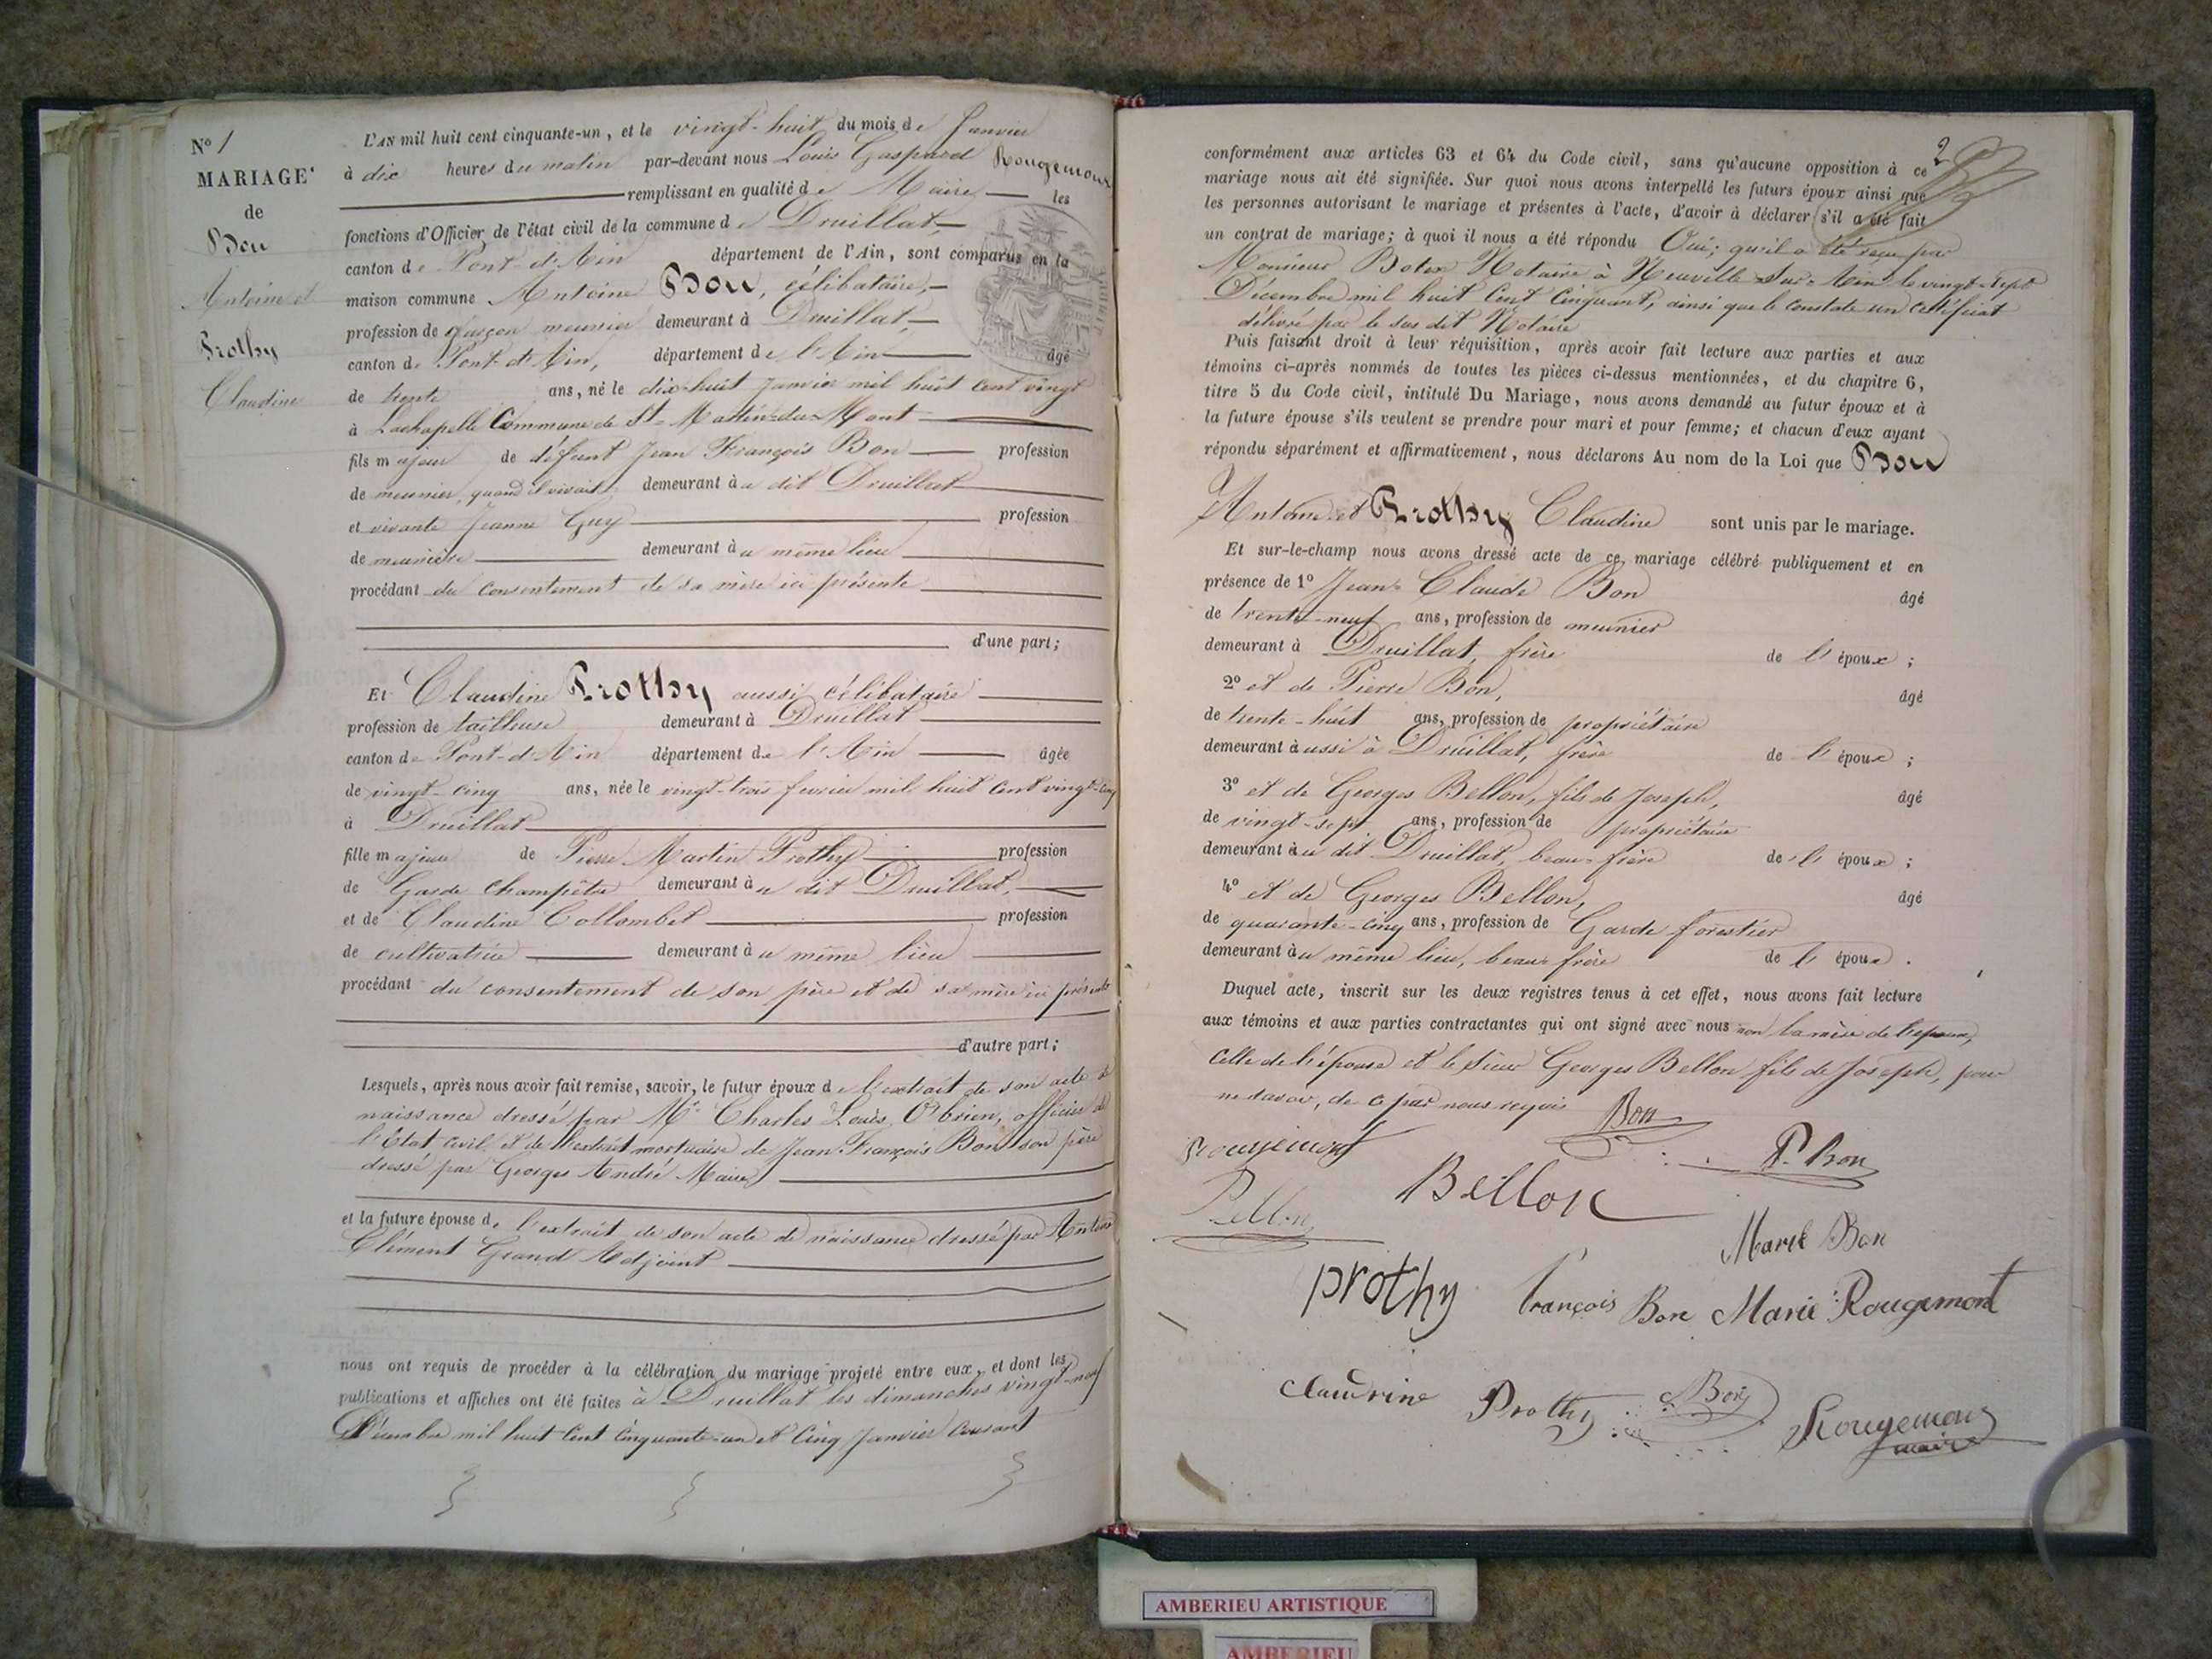 N° 1
MARIAGE
de
Bon
Antoine et
Prothy
Claudine
L'AN mil huit cent cinquante-un, et le vingt-huit du mois de Janvier
à dix heures du matin par-devant nous Louis Gaspard Rougemont
remplissant en qualité de Maire les
fonctions d'Officier de l'état civil de la commune de Druillat
canton de Pont-d'Ain département de l'Ain, sont comparus en la
maison commune Antoine Bon, célibataire,
profession de garçon meunier demeurant à Druillat,
canton de Pont-d'Ain, département de l'Ain âgé
de trente ans, né le dix-huit Janvier mil huit cent vingt
à Lachapelle Commune de St-Martin-du-Mont
fils majeur de défunt Jean François Bon profession
de meunier, quand il vivait, demeurant au dit Druillat
et vivante Jeanne Guy profession
de meunière demeurant au même lieu
procédant du consentement de sa mère ici présente
d'une part;
Et Claudine Prothy aussi célibataire
profession de tailleuse demeurant à Druillat
canton de Pont-d'Ain département de l'Ain âgée
de vingt-cinq ans, née le vingt-trois fevrier mil huit cent vingt-cinq
à Druillat
fille majeure de Pierre Martin Prothy profession
de Garde champêtre demeurant au dit Druillat,
et de Claudine Collombet profession
de cultivatrice demeurant au même lieu
procédant du consentement de son père et de sa mère ici présents
d'autre part;
Lesquels, après nous avoir fait remise, savoir, le futur époux de l'extrait de son acte de
naissance dressé par Mr Charles Louis O'brien, officier de
l'État civil et de l'extrait mortuaire de Jean François Bon son père
dressé par Georges André Maire
et la future épouse de l'extrait de son acte de naissance dressé par Antoine
Clément Grand Adjoint
nous ont requis de procéder à la célébration du mariage projeté entre eux, et dont les
publications et affiches ont été faites à Druillat les dimanches vingt-neuf
Décembre mil huit cent cinquante-un et cinq Janvier courant
2
conformément aux articles 63 et 64 du Code civil, sans qu'aucune opposition à ce
mariage nous ait été signifiée. Sur quoi nous avons interpellé les futurs époux ainsi que
les personnes autorisant le mariage et présentes à l'acte, d'avoir à déclarer s'il a été fait
un contrat de mariage; à quoi il nous a été répondu Oui; qu'il a été reçu par
Monsieur Notaire à Neuville-Sur-Ain le vingt-sept
Décembre mil huit Cent Cinquant, ainsi que le constate un certificat
délivré par le sus dit Notaire
Puis faisant droit à leur réquisition, après avoir fait lecture aux parties et aux
témoins ci-après nommés de toutes les pièces ci-dessus mentionnées, et du chapitre 6,
titre 5 du Code civil, intitulé Du Mariage, nous avons demandé au futur époux et à
la future épouse s'ils veulent se prendre pour mari et pour femme; et chacun d'eux ayant
répondu séparément et affirmativement, nous déclarons Au nom de la Loi que Bon
Antoine et Prothy Claudine sont unis par le mariage.
Et sur-le-champ nous avons dressé acte de ce mariage célébré publiquement et en
présence de 1° Jean-Claude Bon âgé
de trente-neuf ans, profession de meunier
demeurant à Druillat, frère de l'époux;
2° et de Pierre Bon, âgé
de trente-huit ans, profession de propriétaire
demeurant aussi à Druillat, frère de l'époux;
3° et de Georges Bellon, fils de Joseph, âgé
de vingt-sept ans, profession de propriétaire
demeurant au dit Druillat, beau-frère de l'époux;
4° et de Georges Bellon, âgé
de quarante-cinq ans, profession de Garde forestier
demeurant au même lieu, beau-frère de l'époux.
Duquel acte, inscrit sur les deux registres tenus à cet effet, nous avons fait lecture
aux témoins et aux parties contractantes qui ont signé avec nous non la mère de l'époux,
celle de l'épouse et le sieur Georges Bellon fils de Joseph, pour
ne savoir, de ce par nous requis Bon
Rougemont P. Bon
Bellon
Bellon
Marie Bon
Prothy François Bon Marie Rougemont
Claudine Prothy Bon Rougemont
maire
AMBERIEU ARTISTIQUE
AMBERIEU